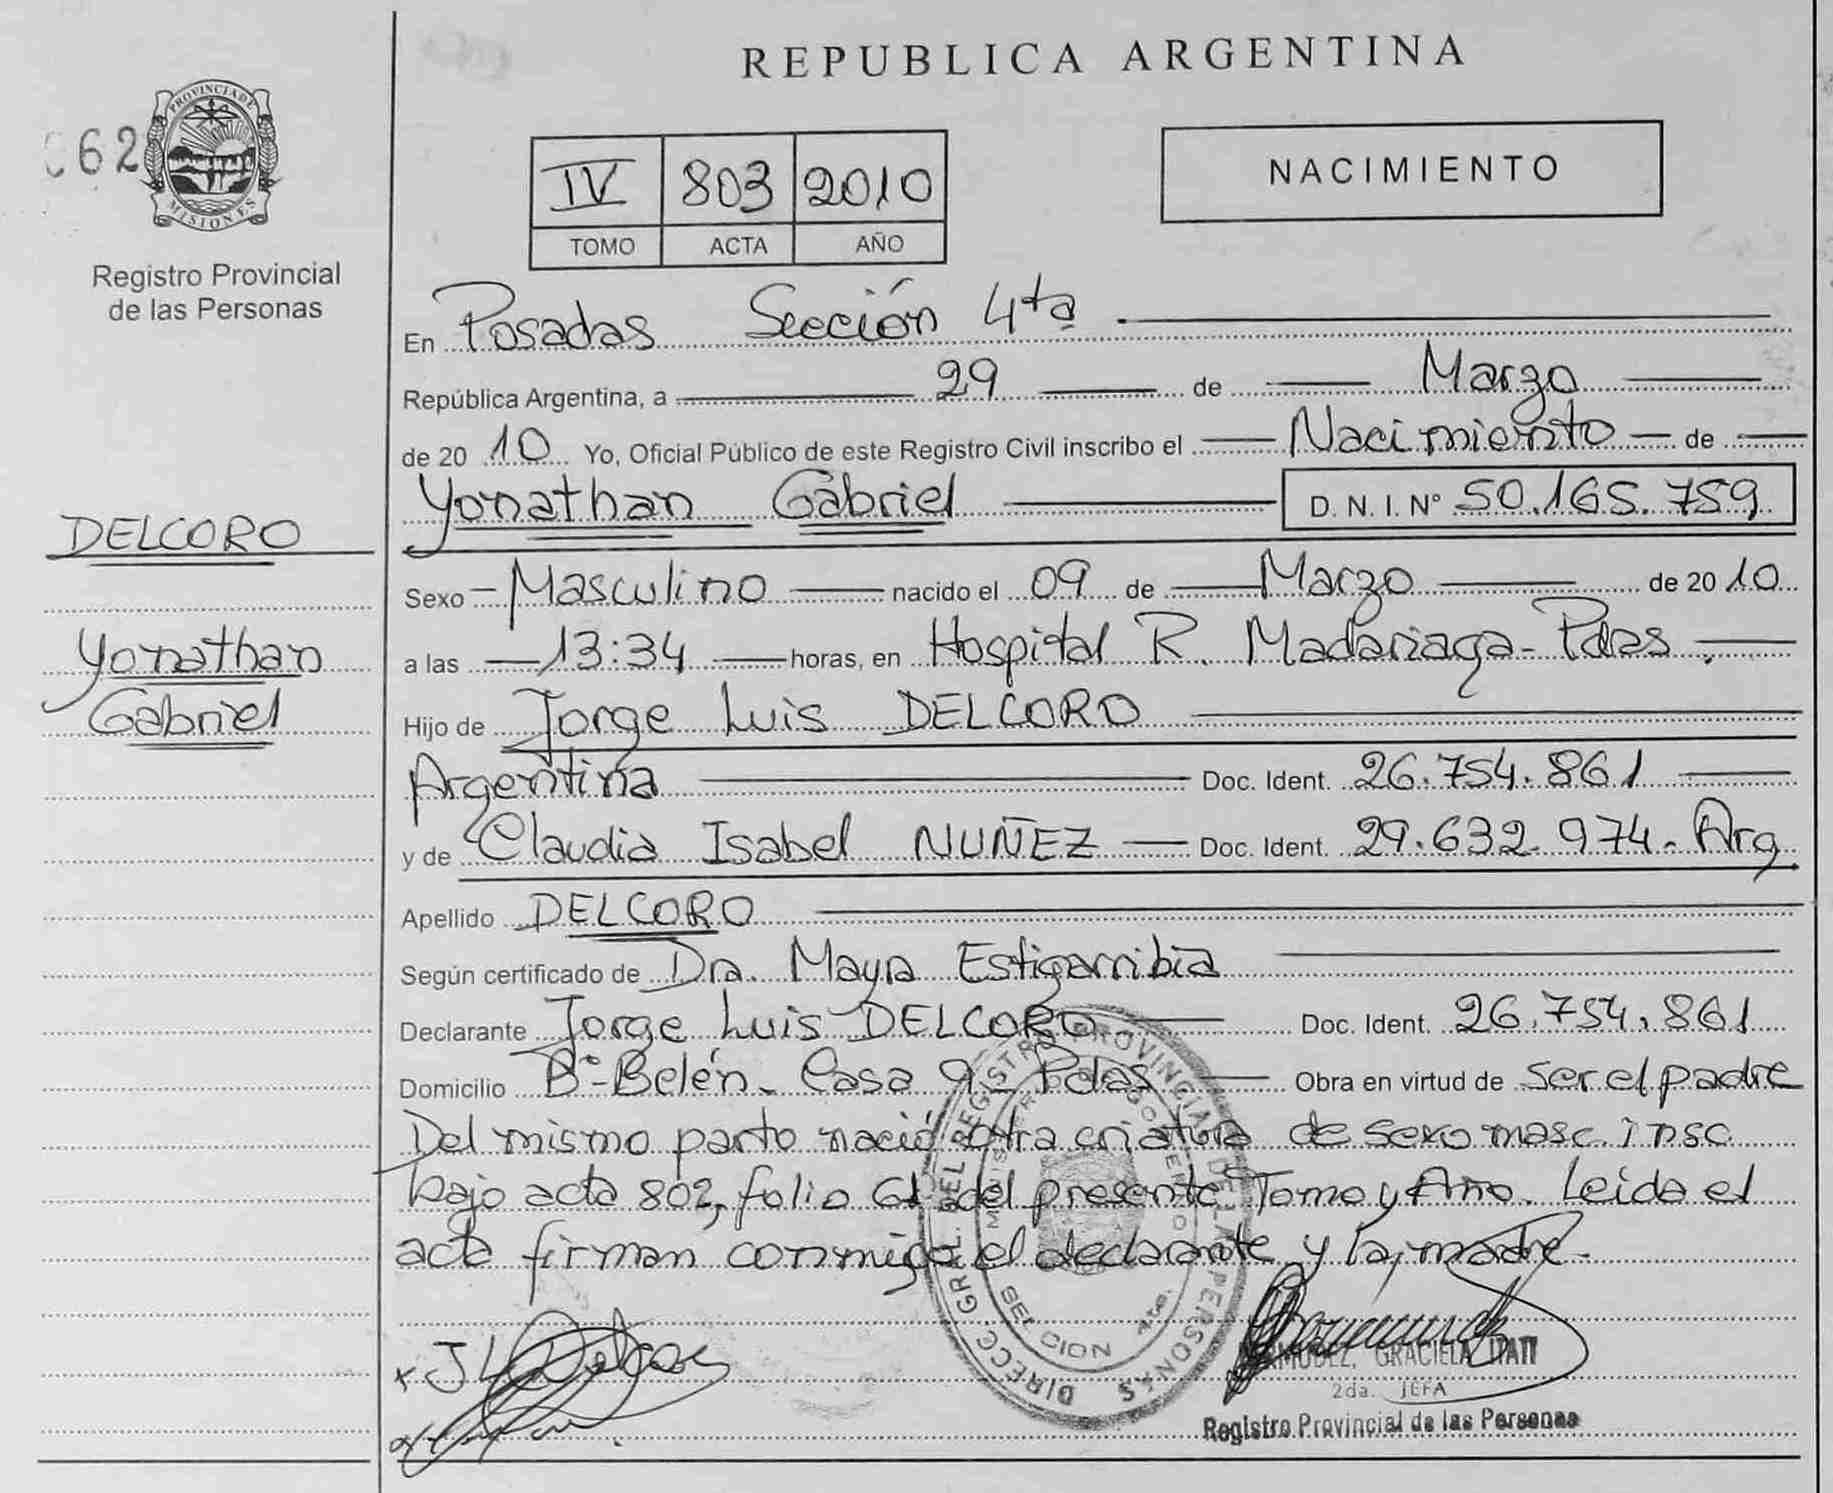 REPUBLICA ARGENTINA
062
PROVINCIA DE MISIONES
Registro Provincial
de las Personas
IV 803 2010
TOMO ACTA AÑO
NACIMIENTO
En Posadas Sección 4ta
República Argentina, a 29 de Marzo
de 20 10 Yo, Oficial Público de este Registro Civil inscribo el Nacimiento de
Yonathan Gabriel D. N. I. Nº 50.165.759
DELCORO
Sexo Masculino nacido el 09 de Marzo de 20 10
Yonathan
a las 13:34 horas, en Hospital R. Madariaga - Pdas.
Gabriel
Hijo de Jorge Luis DELCORO
Argentina Doc. Ident. 26.754.861
y de Claudia Isabel NUÑEZ Doc. Ident. 29.632.974 - Arg
Apellido DELCORO
Según certificado de Dra. Mayra Estigarribia
Declarante Jorge Luis DELCORO Doc. Ident. 26.754.861
Domicilio Bº- Belén - Casa 9 - Pdas Obra en virtud de ser el padre
Del mismo parto nació otra criatura de sexo masc. insc
bajo acta 802, folio 61 del presente Tomo y Año. Leida el
acta firman conmigo el declarante y la madre.
DIRECC. GRAL. DEL REGISTRO PROVINCIAL DE LAS PERSONAS
MINISTERIO GOBIERNO
SECCION 4ta.
J L Delcoro
BERMUDEZ, GRACIELA ITATI
2da. JEFA
Registro Provincial de las Personas